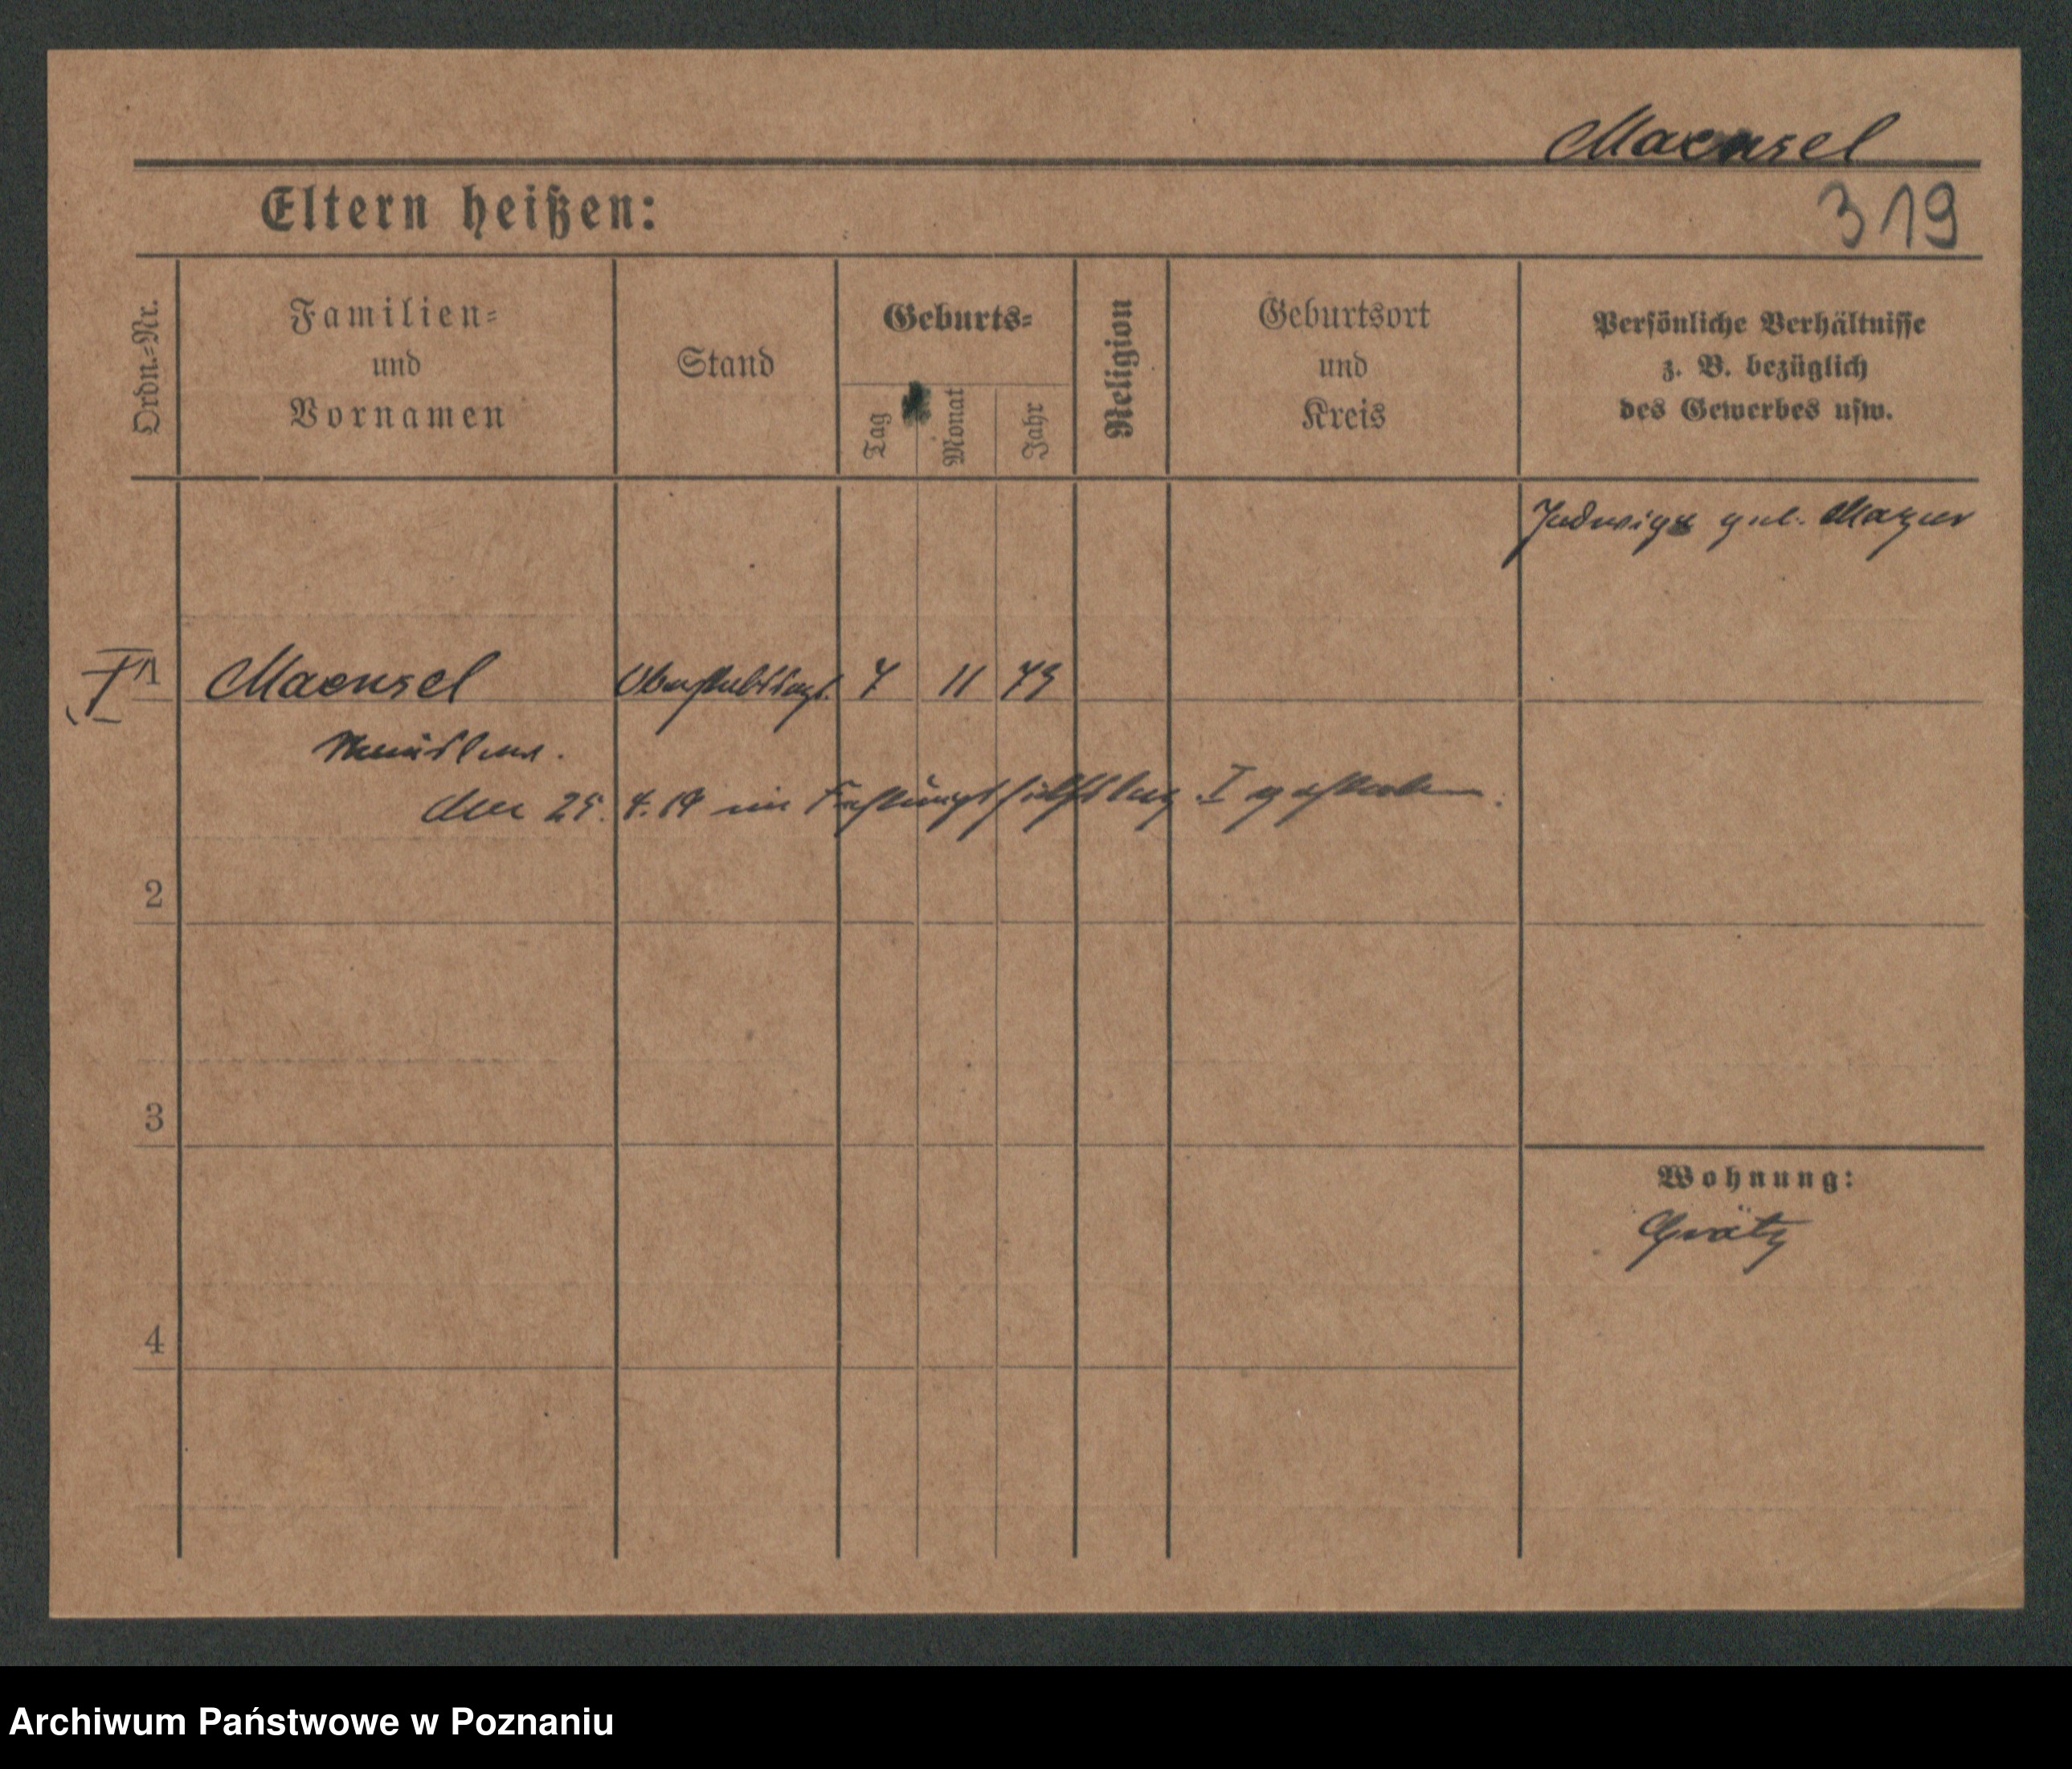 Maensel
Eltern heißen:
319
Ordn.-Nr.
Familien-
und
Vornamen
Stand
Geburts-
Tag
Monat
Jahr
Religion
Geburtsort
und
Kreis
Persönliche Verhältnisse
z. B. bezüglich
des Gewerbes usw.
Hedwiga geb. Mazur
1 Maensel 7 11 79
den 25. 4. 19 im I gestorben.
2
3
Wohnung:
Grätz
4
Archiwum Państwowe w Poznaniu